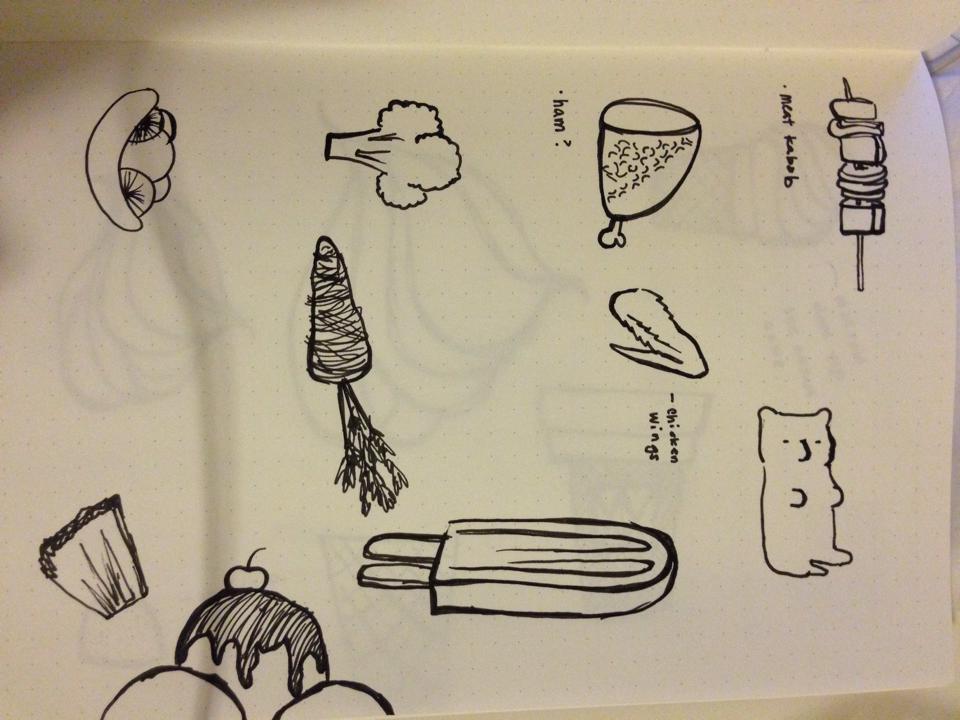 · meat kabob
· ham?
- chicken
wings